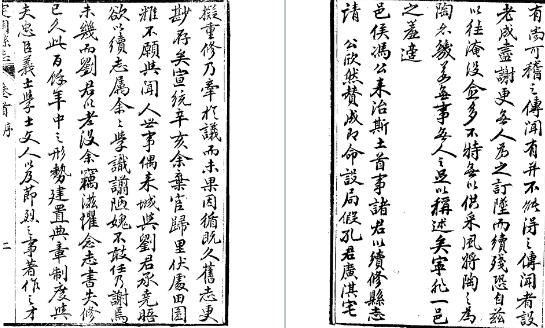 擬重修乃牽於議而未果因循既久舊志更
尠存矣宣統辛亥余棄官歸里伏處田園
雅不願與聞人世事偶来城與劉君承堯晤
欲以續志属余余學識譾陋媿不敢任乃謝焉
未幾而劉君以老没余竊滋懼念志書失修
已久此百餘年中之形勢建置典章制度與
夫忠臣義士學士文人以及節烈之事著作之才
定陶縣志 卷首 序 二
有尚可稽之傳聞有并不能得之傳聞者設
老成盡謝更無人為之訂墜而續殘恐自茲
以往淹没愈多不特無以供采風將陶之為
陶不幾若無事無人之足以稱述矣寧非一邑
之羞逮
邑侯馮公来治斯土首事諸君以續修縣志
請 公欣然贊成即命設局假孔君廣淇宅